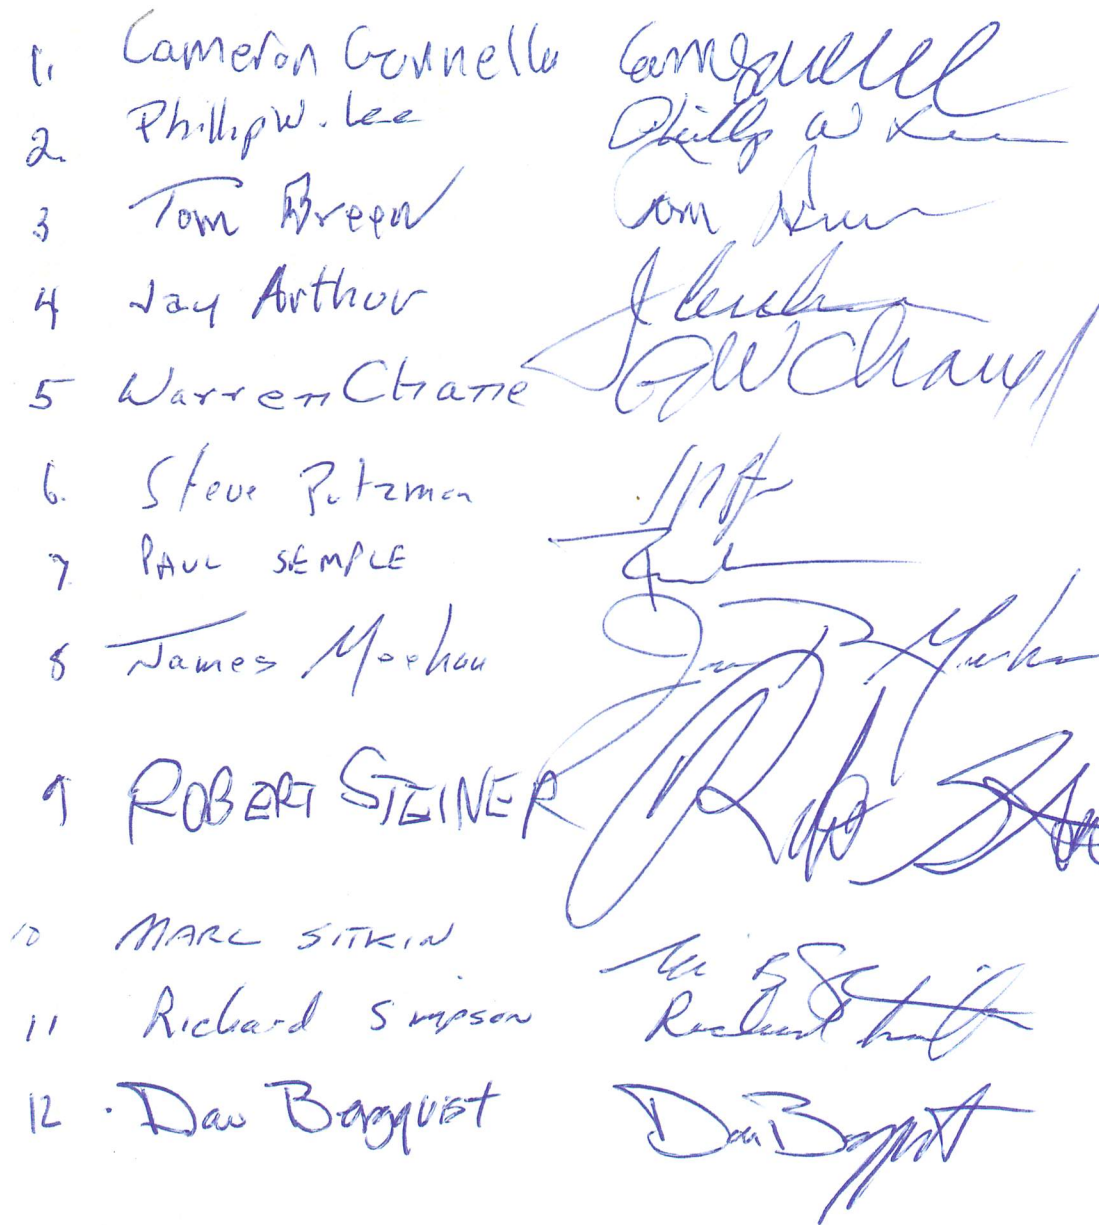 1. Cameron Gunnella
2. Phillip W. Lee Phillip W Lee
3 Tom Breen Tom Breen
4 Jay Arthur
5 Warren Chane GW Chane
6. Steve Putzman
7 PAUL SEMPLE
8 James Meehan
9 ROBERT STEINER
10 MARC SITKIN
11 Richard Simpson Richard
12 Dan Bergquist Dan Bergquist